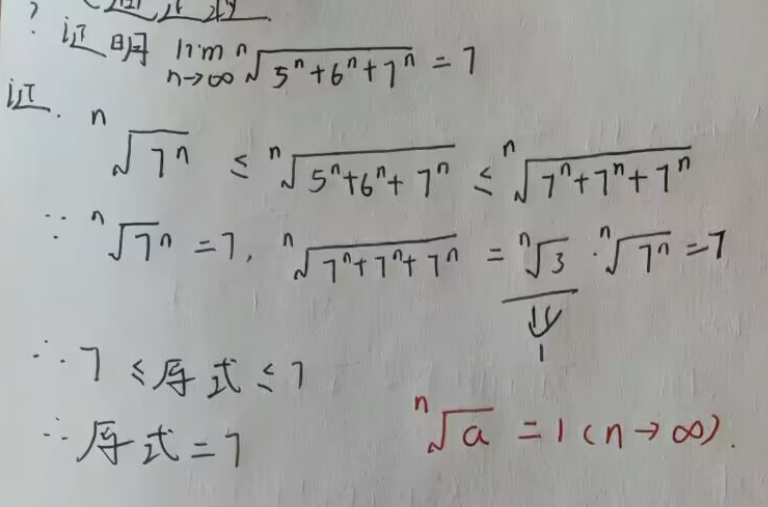 ? 证明 lim n→∞ ⁿ√(5ⁿ+6ⁿ+7ⁿ) = 7
证. ⁿ√(7ⁿ) ≤ ⁿ√(5ⁿ+6ⁿ+7ⁿ) ≤ ⁿ√(7ⁿ+7ⁿ+7ⁿ)
∵ ⁿ√7ⁿ = 7, ⁿ√(7ⁿ+7ⁿ+7ⁿ) = ⁿ√3 · ⁿ√(7ⁿ) = 7
⇓
1
∴ 7 ≤ 原式 ≤ 7
∴ 原式 = 7
ⁿ√a = 1 (n→∞).